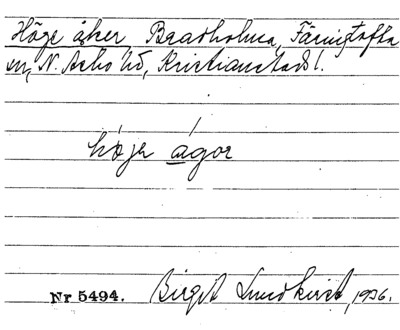 Höge åker, Bradholma, Färingtofta
sn, N. Asbo hd, Kristianstads l.
højer ágor
Nr 5494. Birgit Lundkvist, 1936.